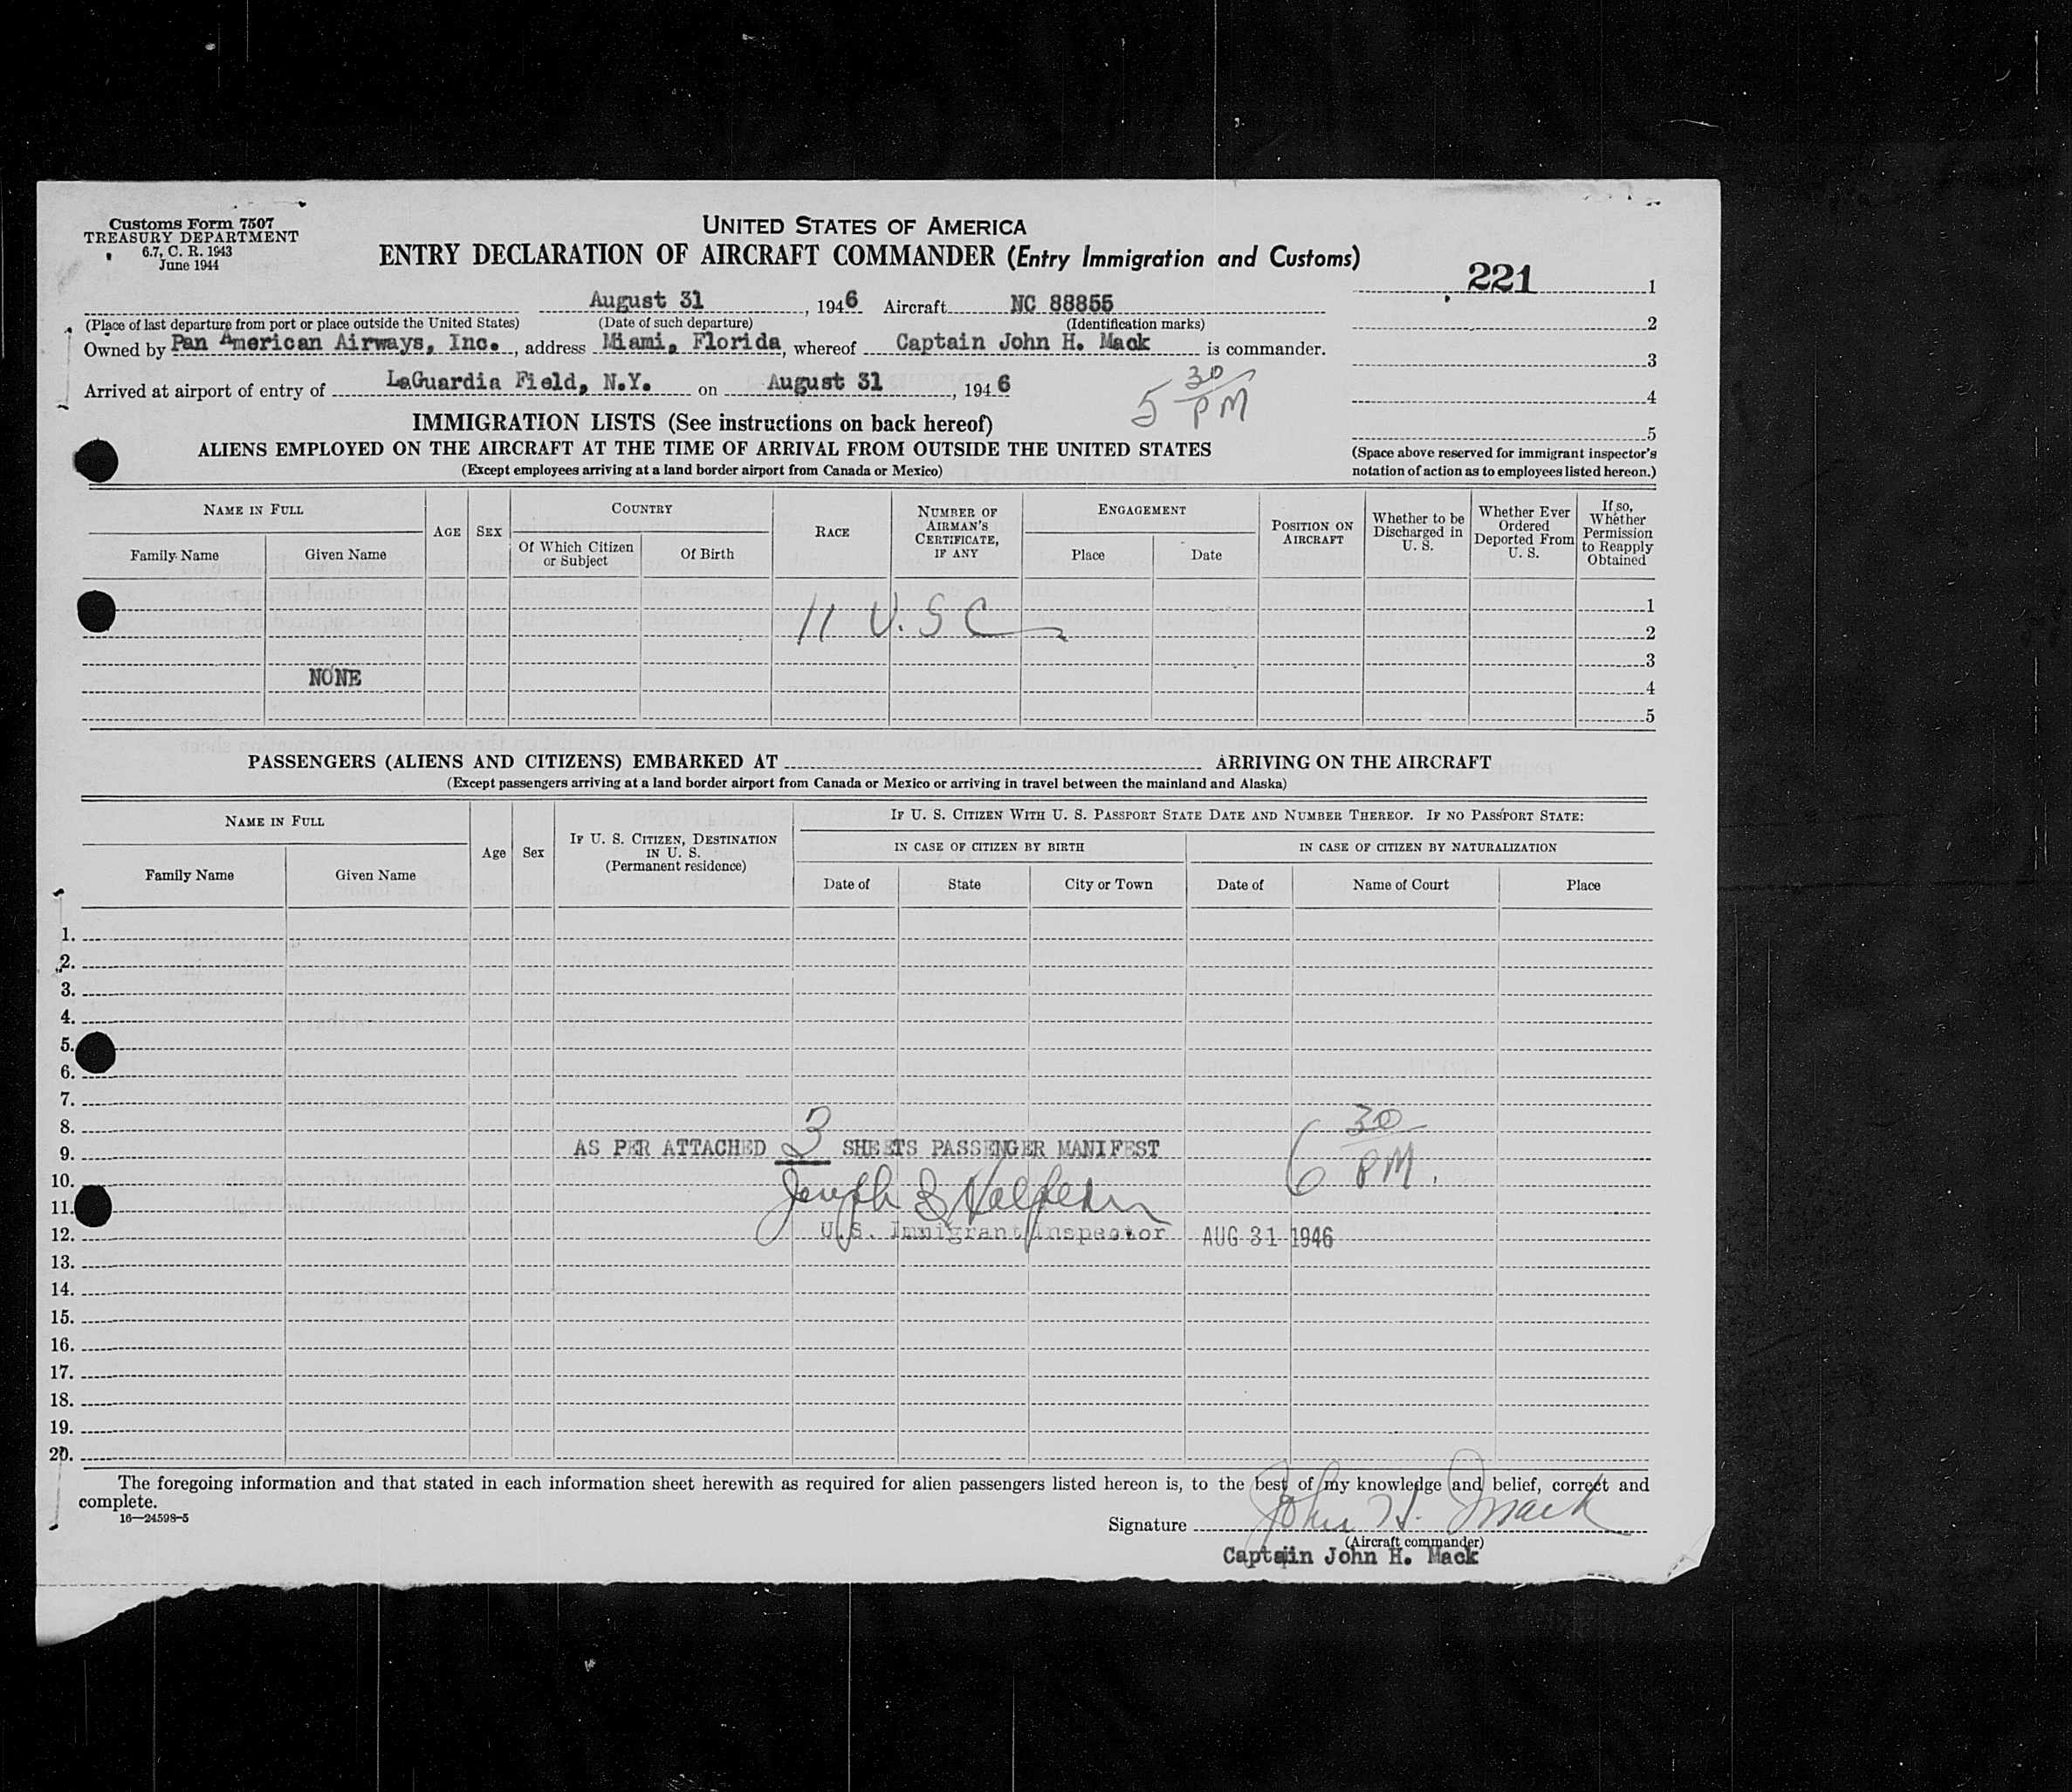 Customs Form 7507
TREASURY DEPARTMENT
6.7, C. R. 1943
June 1944
UNITED STATES OF AMERICA
ENTRY DECLARATION OF AIRCRAFT COMMANDER (Entry Immigration and Customs)
221 1
2
3
4
5
August 31, 1946 Aircraft NC 88855
(Place of last departure from port or place outside the United States) (Date of such departure) (Identification marks)
Owned by Pan American Airways, Inc., address Miami, Florida, whereof Captain John H. Mack is commander.
Arrived at airport of entry of LaGuardia Field, N.Y. on August 31, 1946
5 30 PM
IMMIGRATION LISTS (See instructions on back hereof)
ALIENS EMPLOYED ON THE AIRCRAFT AT THE TIME OF ARRIVAL FROM OUTSIDE THE UNITED STATES
(Except employees arriving at a land border airport from Canada or Mexico)
(Space above reserved for immigrant inspector's
notation of action as to employees listed hereon.)
NAME IN FULL
Family Name Given Name
AGE SEX
COUNTRY
Of Which Citizen or Subject Of Birth
RACE
NUMBER OF AIRMAN'S CERTIFICATE, IF ANY
ENGAGEMENT
Place Date
POSITION ON AIRCRAFT
Whether to be Discharged in U. S.
Whether Ever Ordered Deported From U. S.
If so, Whether Permission to Reapply Obtained
1
11 U.S C
2
3
NONE
4
5
PASSENGERS (ALIENS AND CITIZENS) EMBARKED AT ARRIVING ON THE AIRCRAFT
(Except passengers arriving at a land border airport from Canada or Mexico or arriving in travel between the mainland and Alaska)
NAME IN FULL
Family Name Given Name
Age Sex
IF U. S. CITIZEN, DESTINATION IN U. S.
(Permanent residence)
IF U. S. CITIZEN WITH U. S. PASSPORT STATE DATE AND NUMBER THEREOF. IF NO PASSPORT STATE:
IN CASE OF CITIZEN BY BIRTH IN CASE OF CITIZEN BY NATURALIZATION
Date of State City or Town Date of Name of Court Place
1.
2.
3.
4.
5.
6.
7.
8.
9. AS PER ATTACHED 3 SHEETS PASSENGER MANIFEST 6 30 PM.
10.
11. Joseph S Halpern
12. U.S. Immigrant Inspector AUG 31 1946
13.
14.
15.
16.
17.
18.
19.
20.
The foregoing information and that stated in each information sheet herewith as required for alien passengers listed hereon is, to the best of my knowledge and belief, correct and
complete.
16—24598-5
Signature John H. Mack
(Aircraft commander)
Captain John H. Mack